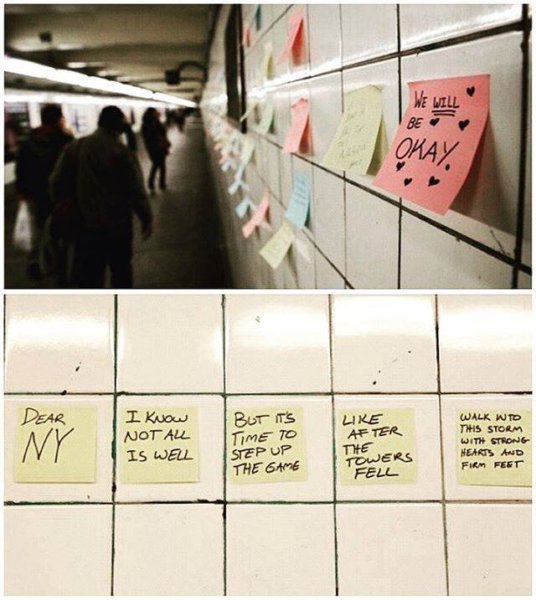 WE WILL
BE
OKAY.
DEAR
NY
I KNOW
NOT ALL
IS WELL
BUT IT'S
TIME TO
STEP UP
THE GAME
LIKE
AFTER
THE
TOWERS
FELL
WALK INTO
THIS STORM
WITH STRONG
HEARTS AND
FIRM FEET